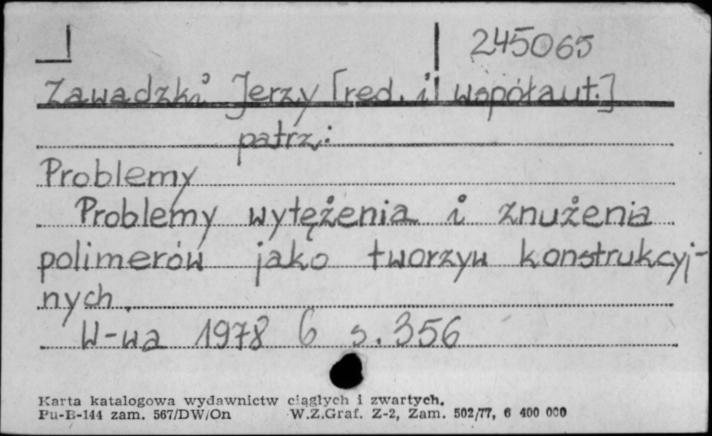 245065
Zawadzki Jerzy [red. i współaut.]
patrz:
Problemy
Problemy wytężenia i znużenia
polimerów jako tworzyw konstrukcyj-
nych.
W-wa 1978 6 s. 356
Karta katalogowa wydawnictw ciągłych i zwartych.
Pu-B-144 zam. 567/DW/On W.Z.Graf. Z-2, Zam. 502/77, 6 400 000